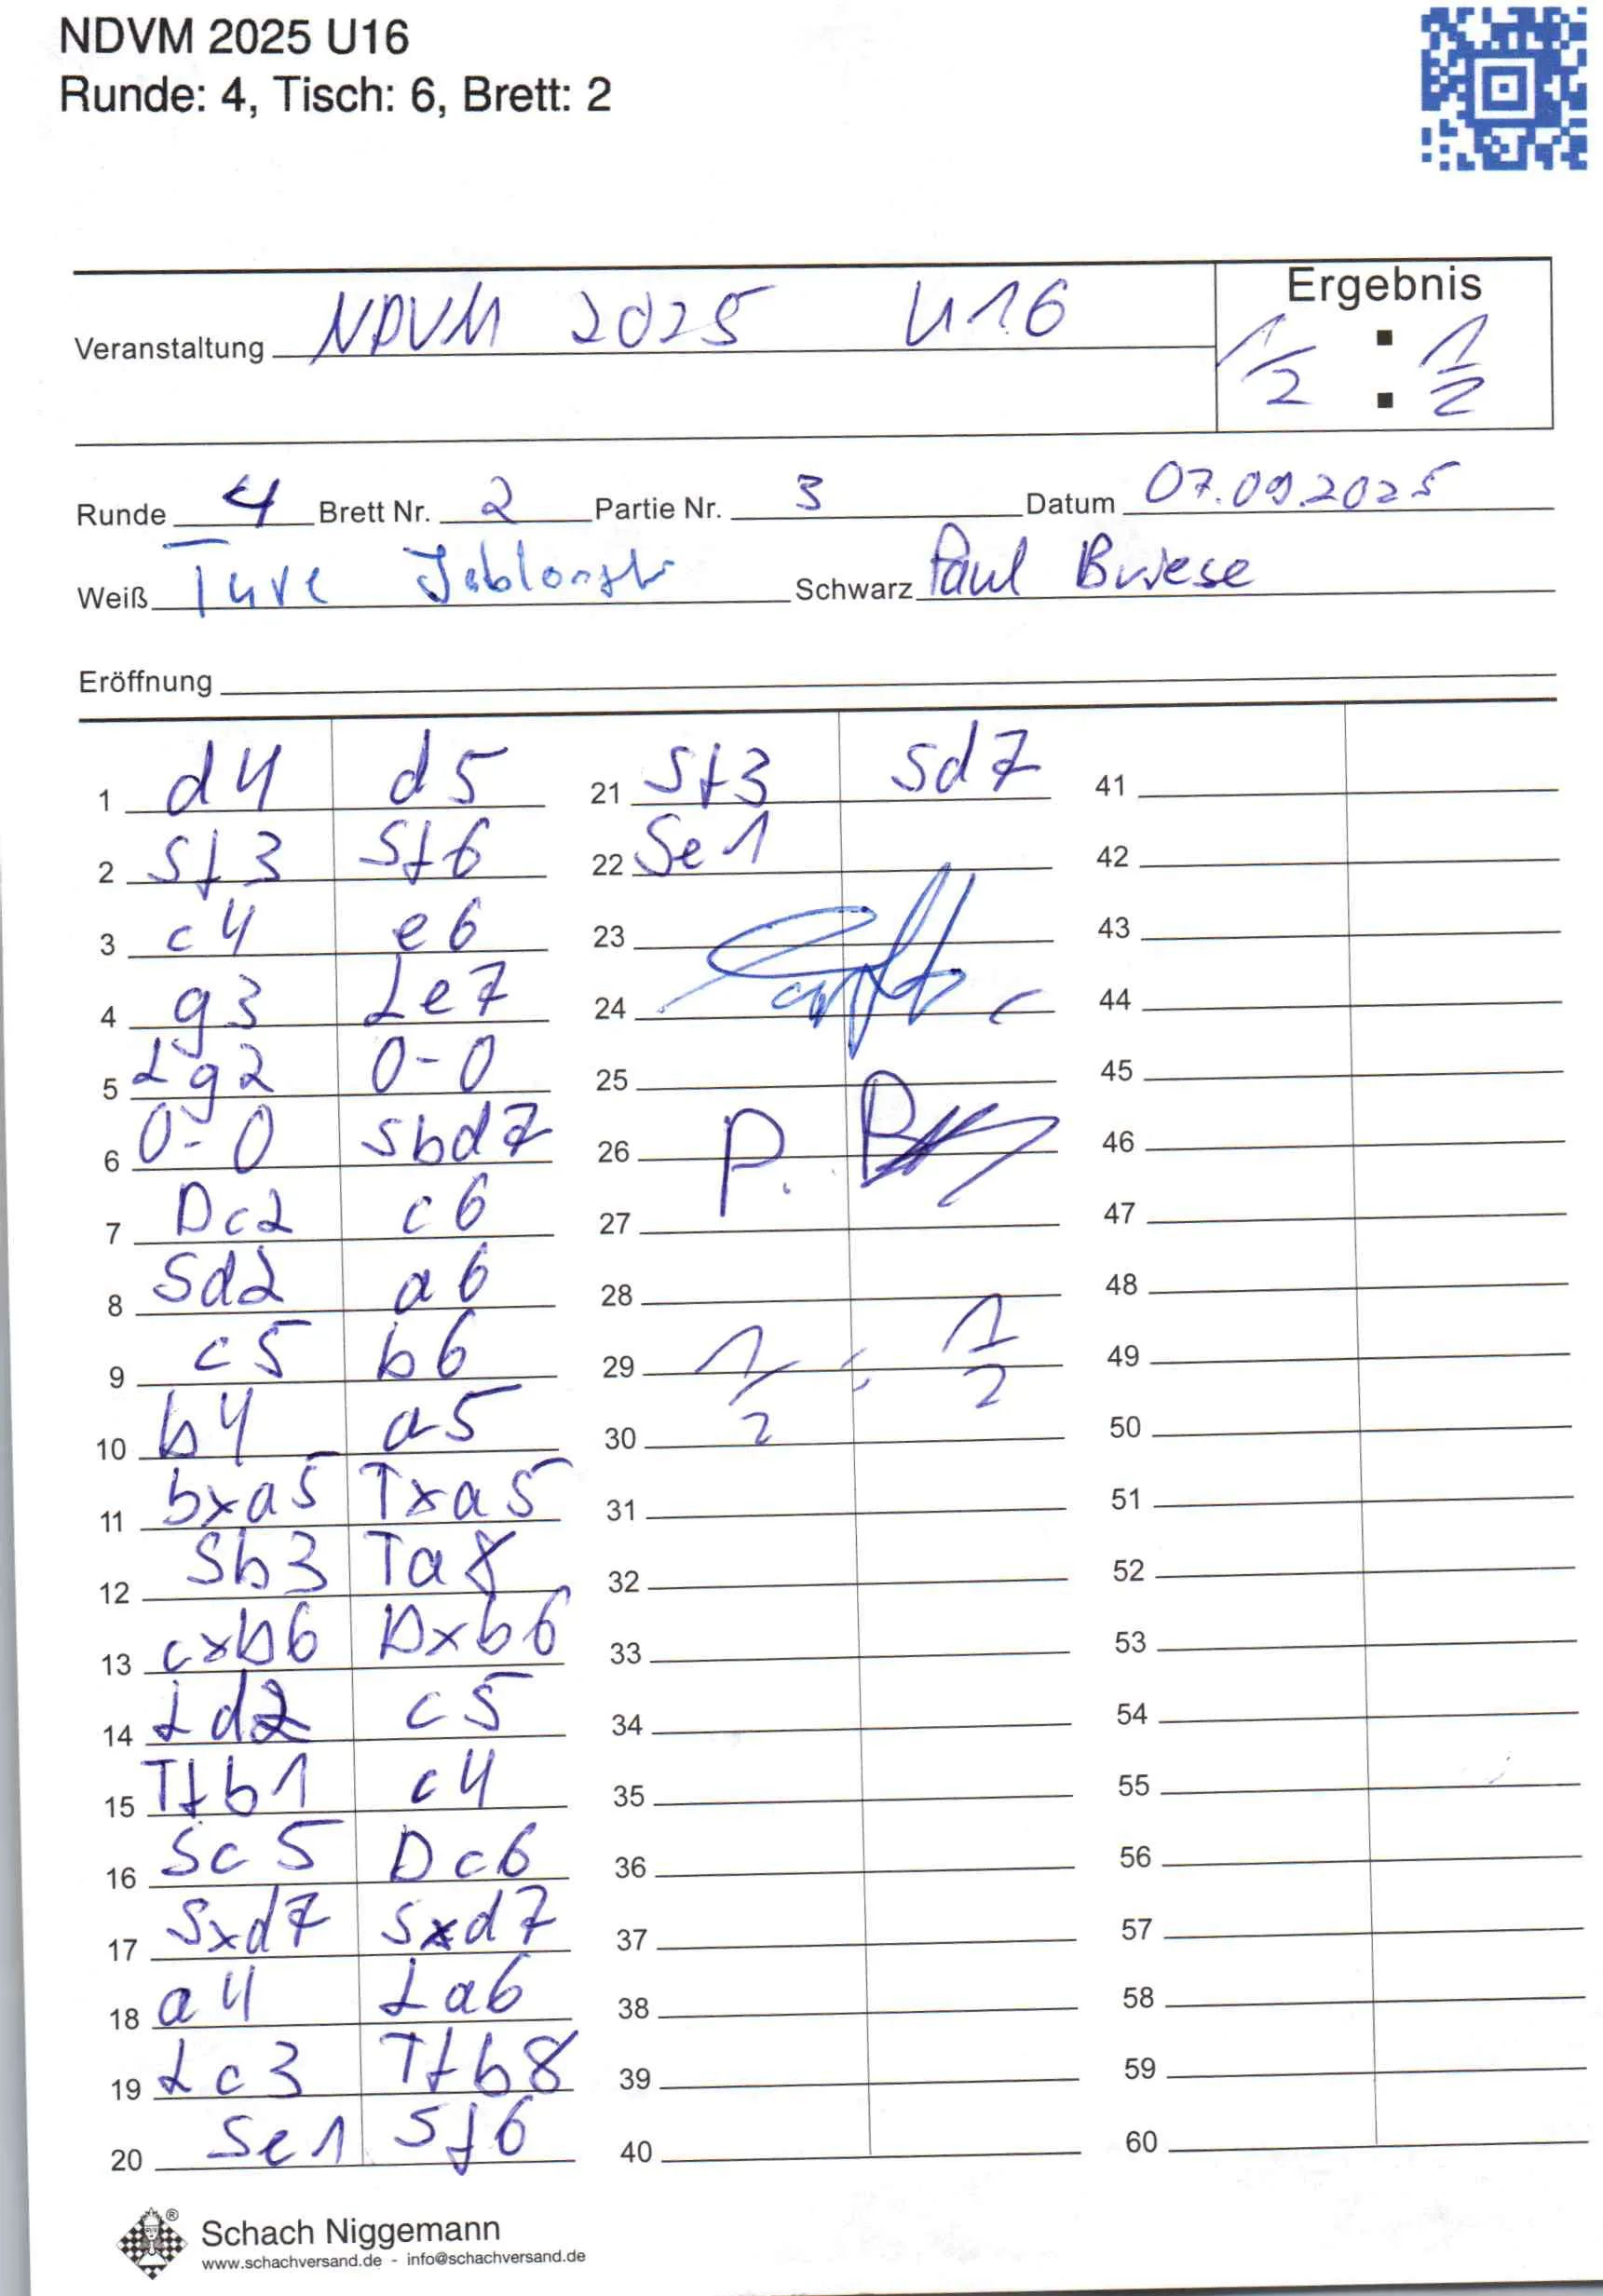 NDVM 2025 U16
Runde: 4, Tisch: 6, Brett: 2
Ergebnis
Veranstaltung NDVM 2025 U16
1/2 : 1/2
Runde 4 Brett Nr. 2 Partie Nr. 3 Datum 07.09.2025
Weiß Ture Schwarz Paul Briese
Eröffnung
1 d4 d5
2 Sf3 Sf6
3 c4 e6
4 g3 Le7
5 Lg2 0-0
6 0-0 Sbd7
7 Dc2 c6
8 Sd2 a6
9 c5 b6
10 b4 a5
11 bxa5 Txa5
12 Sb3 Ta8
13 cxb6 Dxb6
14 Ld2 c5
15 Tfb1 c4
16 Sc5 Dc6
17 Sxd7 Sxd7
18 a4 La6
19 Lc3 Tfb8
20 Se1 Sf6
21 Sf3 Sd7
22 Se1
23
24
25
26 P.
27
28
29 1/2 : 1/2
30
31
32
33
34
35
36
37
38
39
40
41
42
43
44
45
46
47
48
49
50
51
52
53
54
55
56
57
58
59
60
Schach Niggemann
www.schachversand.de - info@schachversand.de